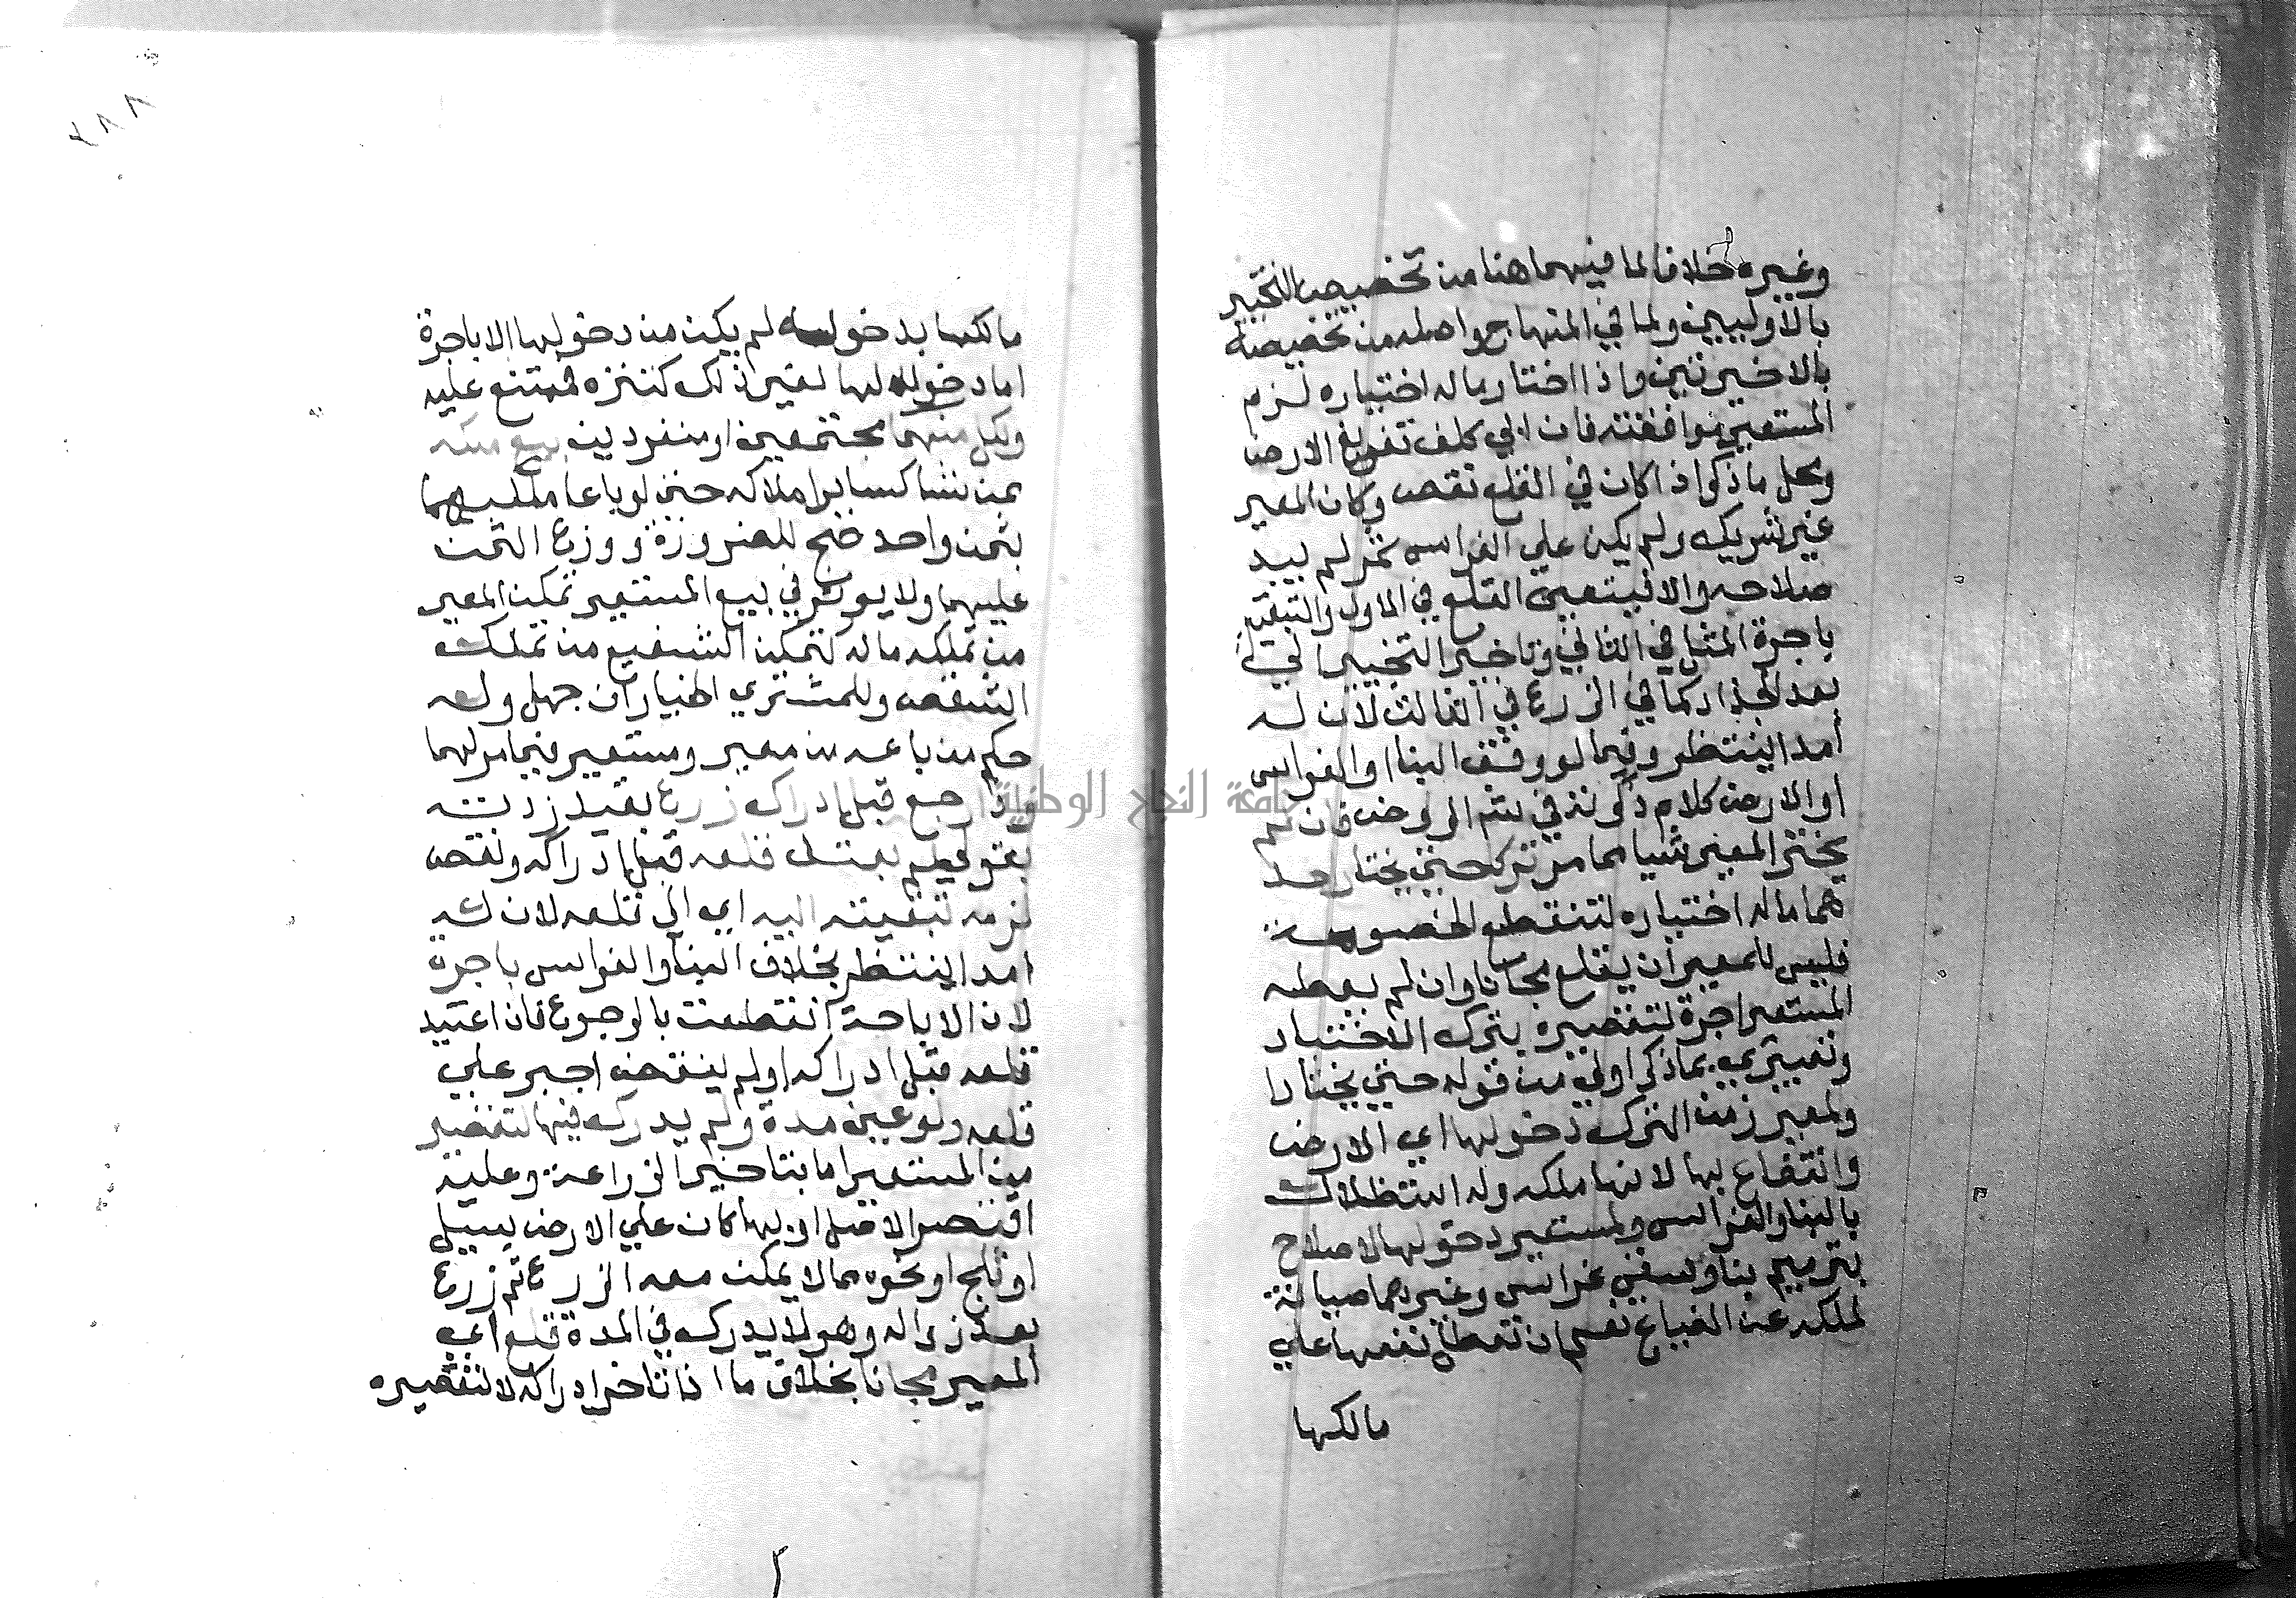 وغيره خلافا لما فيهما هنا من تخصيص التخيير
بالاوليين ولما في المنهاج واصله من تخصيصه
بالاخيرتين واذا اختار ماله اختياره لزم
المستعير موافقته فان ابي كلف تفريغ الارض
ومحل ما ذكر اذا كان في القلع نقص وكان المعير
غير شريك ولم يكن علي الغراس ثمر لم يبد
صلاحه والا فيتعين القلع في الاول والتبقية
باجرة المثل في الثاني وتاخير التخيير الي
بعد الجذاذ كما في الزرع في الثالث لان له
امدا ينتظر وفيما لو وقف البنا او الغراس
او الارض كلام ذكرته في شرح الروض فان لم
يختر المعير شيا مما مر ترك حتي يختار احد
هما ماله اختياره لتنقطع الخصومة
فليس للمعير ان يقلع مجانا وان لم يعطه
المستعير اجرة لتقصيره بترك الاختيار
وتعبيري بما ذكر اولي من قوله حتي يختارا
ولمعير زمن الترك دخولها اي الارض
وانتفاع بها لانها ملكه وله استظلال
بالبنا والغراس ولمستعير دخولها لاصلاح
بترميم بنا وسقي غراس وغيرهما صيانة
لملكه عن الضياع نعم ان تعطل نفعها علي
مالكها
مالكها بدخوله لم يمكن من دخولها الا باجرة
اما دخوله لها لغير ذلك كتنزه فممتنع عليه
ولكل منهما مجتمعين او منفردين بيع ملكه
ممن شا كساير املاكه حتي لو باعا ملكيهما
بثمن واحد صح للضرورة ووزع الثمن
عليهما ولا يوثر في بيع المستعير تمكن المعير
من تملكه ماله كتمكن الشفيع من تملك
الشقص وللمشتري الخيار ان جهل وله
حكم من باعه من معير ومستعير فيما مر لهما
واذا رجع قبل ادراك زرع بقيد زدته
بقولي لم يعتد قلعه قبل ادراكه ونقص
لزمه تبقيته اليه اي الي قلعه لان له
امدا ينتظر بخلاف البنا والغراس باجرة
لان الاباحة انقطعت بالرجوع فان اعتيد
قلعه قبل ادراكه او لم ينقص اجبر علي
قلعه ولو عين مدة ولم يدركه فيها لتقصير
من المستعير اما بتاخير الزراعة وعليه
اقتصر الاصل او بها كان علي الارض سيل
او ثلج او نحوه مما لا يمكن معه الزرع ثم زرع
بعد زواله وهو لا يدركه في المدة قلع اي
المعير مجانا بخلاف ما اذا تاخر ادراكه لا لتقصيره
٢٨٨
جامعة النجاح الوطنية